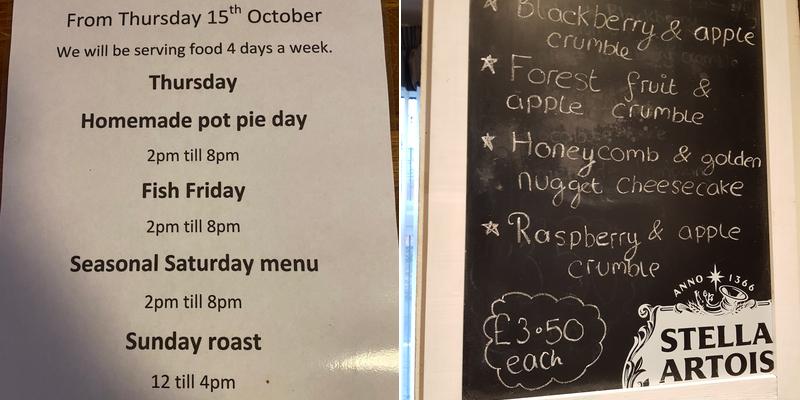 From Thursday 15th October
We will be serving food 4 days a week.
Thursday
Homemade pot pie day
2pm till 8pm
Fish Friday
2pm till 8pm
Seasonal Saturday menu
2pm till 8pm
Sunday roast
12 till 4pm
Blackberry & apple
crumble
Forest fruit &
apple crumble
Honeycomb & golden
nugget cheesecake
Raspberry & apple
crumble
£3.50
each
ANNO 1366
STELLA
ARTOIS